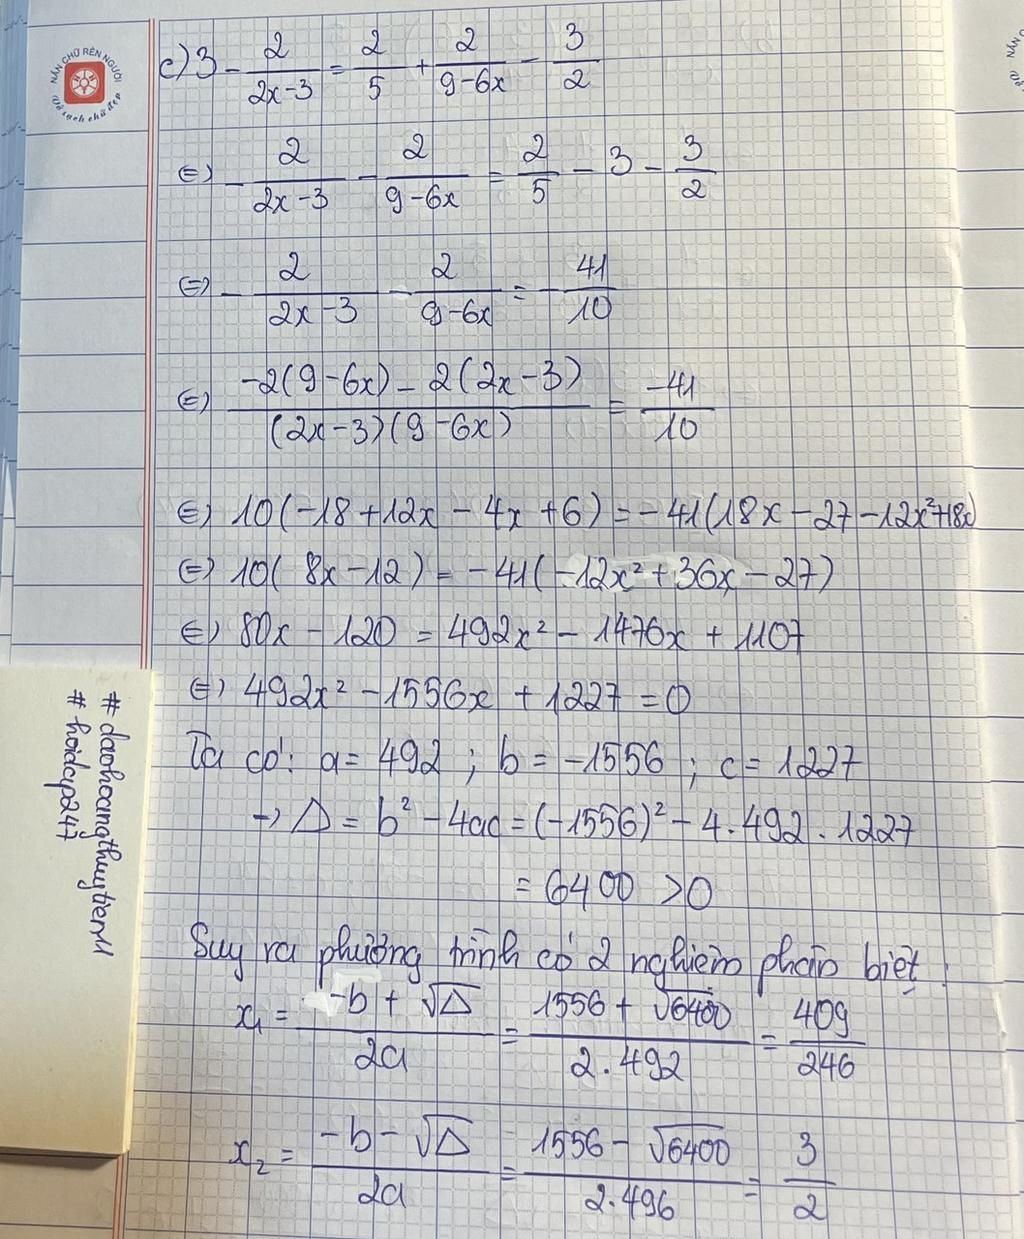 NẮN CHỮ RÈN NGƯỜI
Vở sạch chữ đẹp
c) 3 - 2/(2x-3) = 2/5 + 2/(9-6x) - 3/2
⇔ - 2/(2x-3) - 2/(9-6x) = 2/5 - 3 - 3/2
⇔ - 2/(2x-3) - 2/(9-6x) = - 41/10
⇔ (-2(9-6x) - 2(2x-3))/((2x-3)(9-6x)) = -41/10
⇔ 10(-18+12x-4x+6) = -41(18x-27-12x²+18x)
⇔ 10(8x-12) = -41(-12x²+36x-27)
⇔ 80x - 120 = 492x² - 1476x + 1107
⇔ 492x² - 1556x + 1227 = 0
Ta có: a = 492 ; b = -1556 ; c = 1227
→ Δ = b² - 4ac = (-1556)² - 4.492.1227
= 6400 > 0
Suy ra phương trình có 2 nghiệm phân biệt:
x₁ = (-b + √Δ)/2a = (1556 + √6400)/(2.492) = 409/246
x₂ = (-b - √Δ)/2a = (1556 - √6400)/(2.496) = 3/2
# daohoangthuytien11
# hoidcp247
NẮN